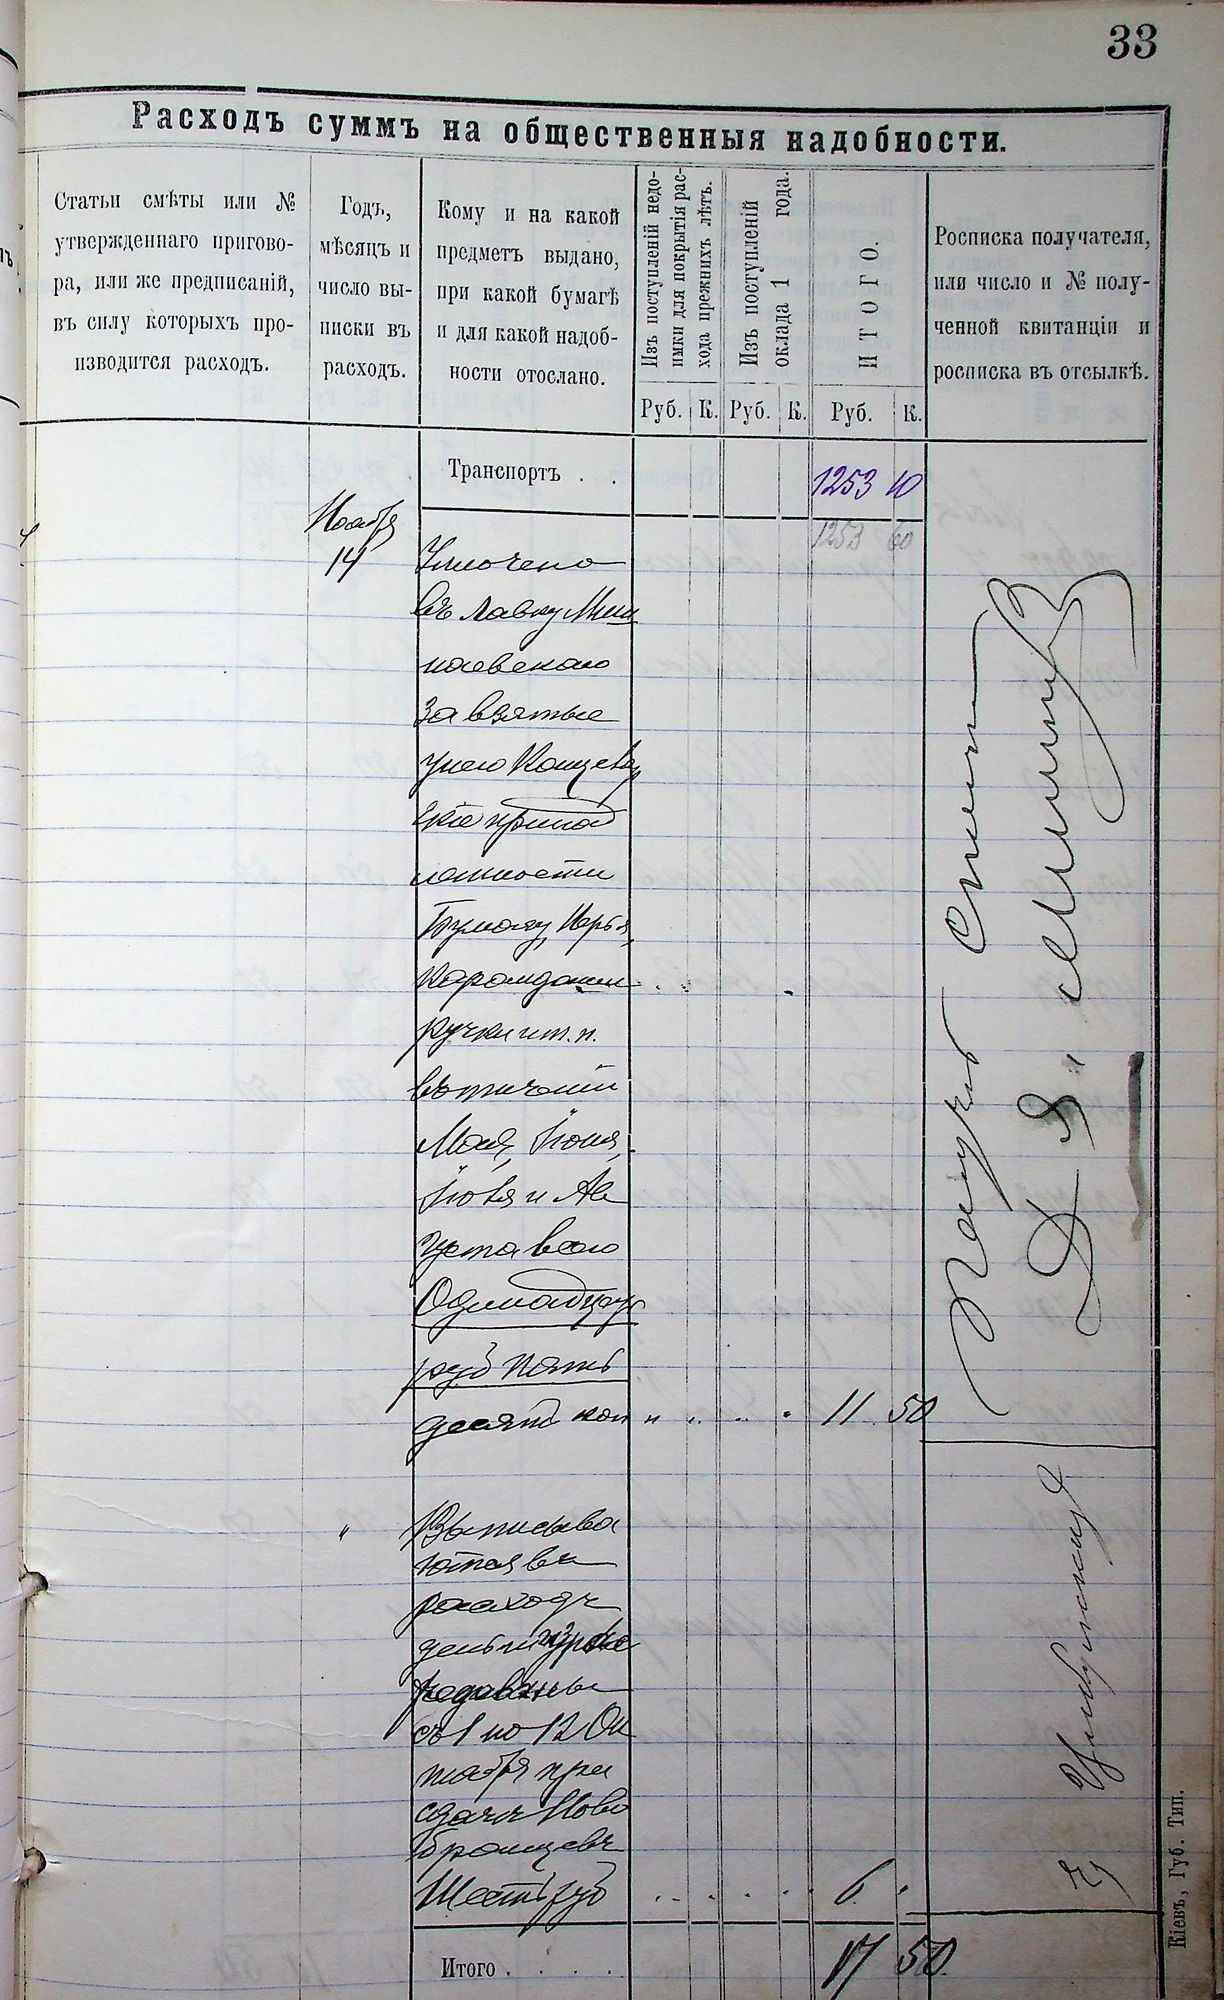 33
Расходъ суммъ на общественныя надобности.
Статьи смѣты или №
утвержденнаго пригово-
ра, или же предписаній,
въ силу которыхъ про-
изводится расходъ.
Годъ,
мѣсяцъ и
число вы-
писки въ
расходъ.
Кому и на какой
предметъ выдано,
при какой бумагѣ
и для какой надоб-
ности отослано.
Изъ поступленій недо-
имки для покрытія рас-
хода прежнихъ лѣтъ.
Изъ поступленій
оклада 1 года.
ИТОГО.
Росписка получателя,
или число и № полу-
ченной квитанціи и
росписка въ отсылкѣ.
Руб. К. Руб. К. Руб. К.
Транспортъ . . 1253 10
1253 60
Ноября
14 Уплочено
въ лавку
за взятые
у него Канцеляр
скіе принад
лежности
Бумагу, Перья,
Карандаши
ручки и т. п.
въ теченіи
Мая, Іюня,
Іюля и Ав
густа всего
Одинадцать
руб пять
десятъ коп " " " " 11 50
" Выписыва
ются въ
расходъ
деньги
съ 1 по 12 Ок
тября при
сдачи Ново
бранцевъ
Шесть руб 6 "
Итого . . . . 17 50
Кіевъ, Губ. Тип.